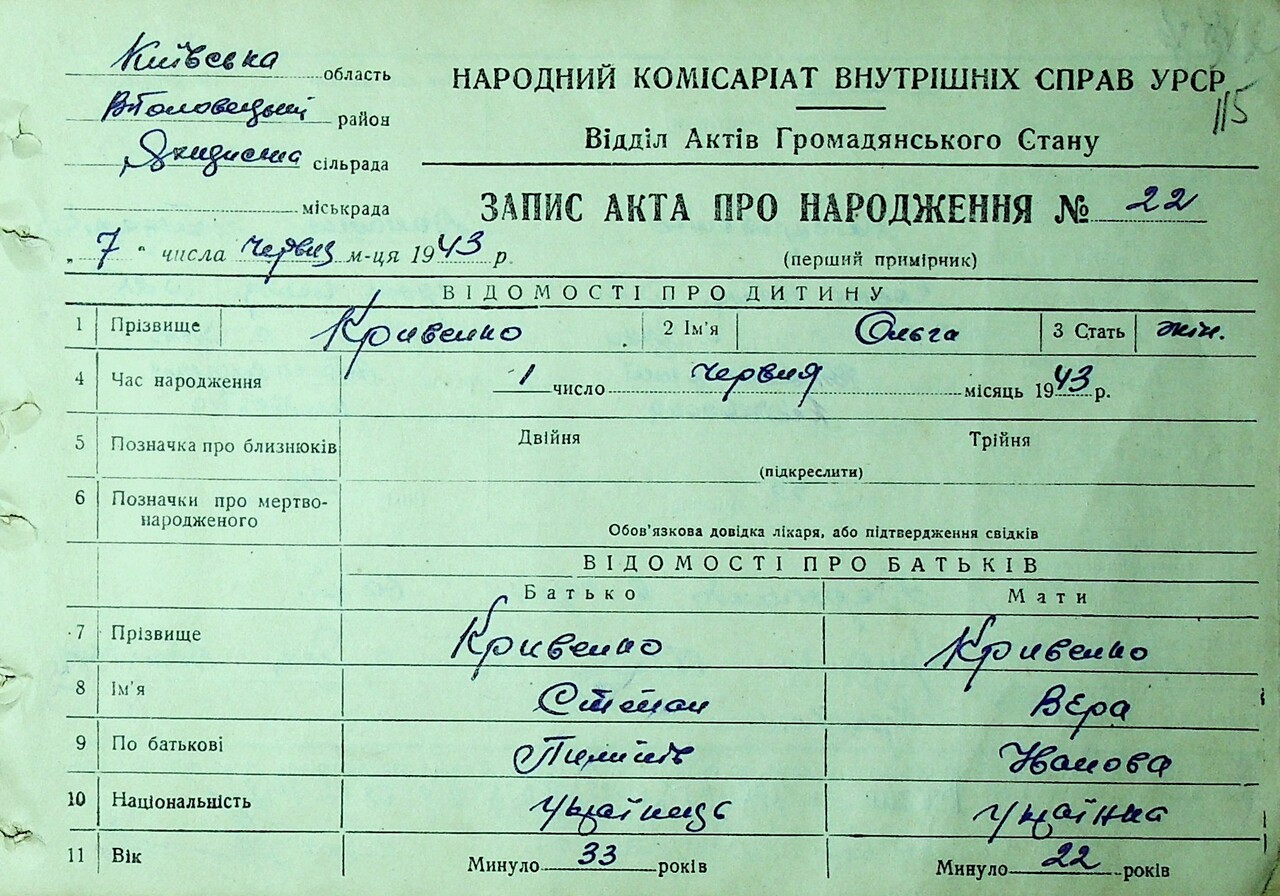 Київська область
В Половецький район
сільрада
міськрада
НАРОДНИЙ КОМІСАРІАТ ВНУТРІШНІХ СПРАВ УРСР
115
Відділ Актів Громадянського Стану
ЗАПИС АКТА ПРО НАРОДЖЕННЯ № 22
„ 7 " числа червня м-ця 1943 р.
(перший примірник)
ВІДОМОСТІ ПРО ДИТИНУ
1 Прізвище Кривенко 2 Ім'я Ольга 3 Стать жін.
4 Час народження 1 число червня місяць 1943 р.
5 Позначка про близнюків Двійня Трійня
(підкреслити)
6 Позначки про мертво-
народженого
Обов'язкова довідка лікаря, або підтвердження свідків
ВІДОМОСТІ ПРО БАТЬКІВ
Батько Мати
7 Прізвище Кривенко Кривенко
8 Ім'я Степан Вєра
9 По батькові Іванова
10 Національність Українець Українка
11 Вік Минуло 33 років Минуло 22 років